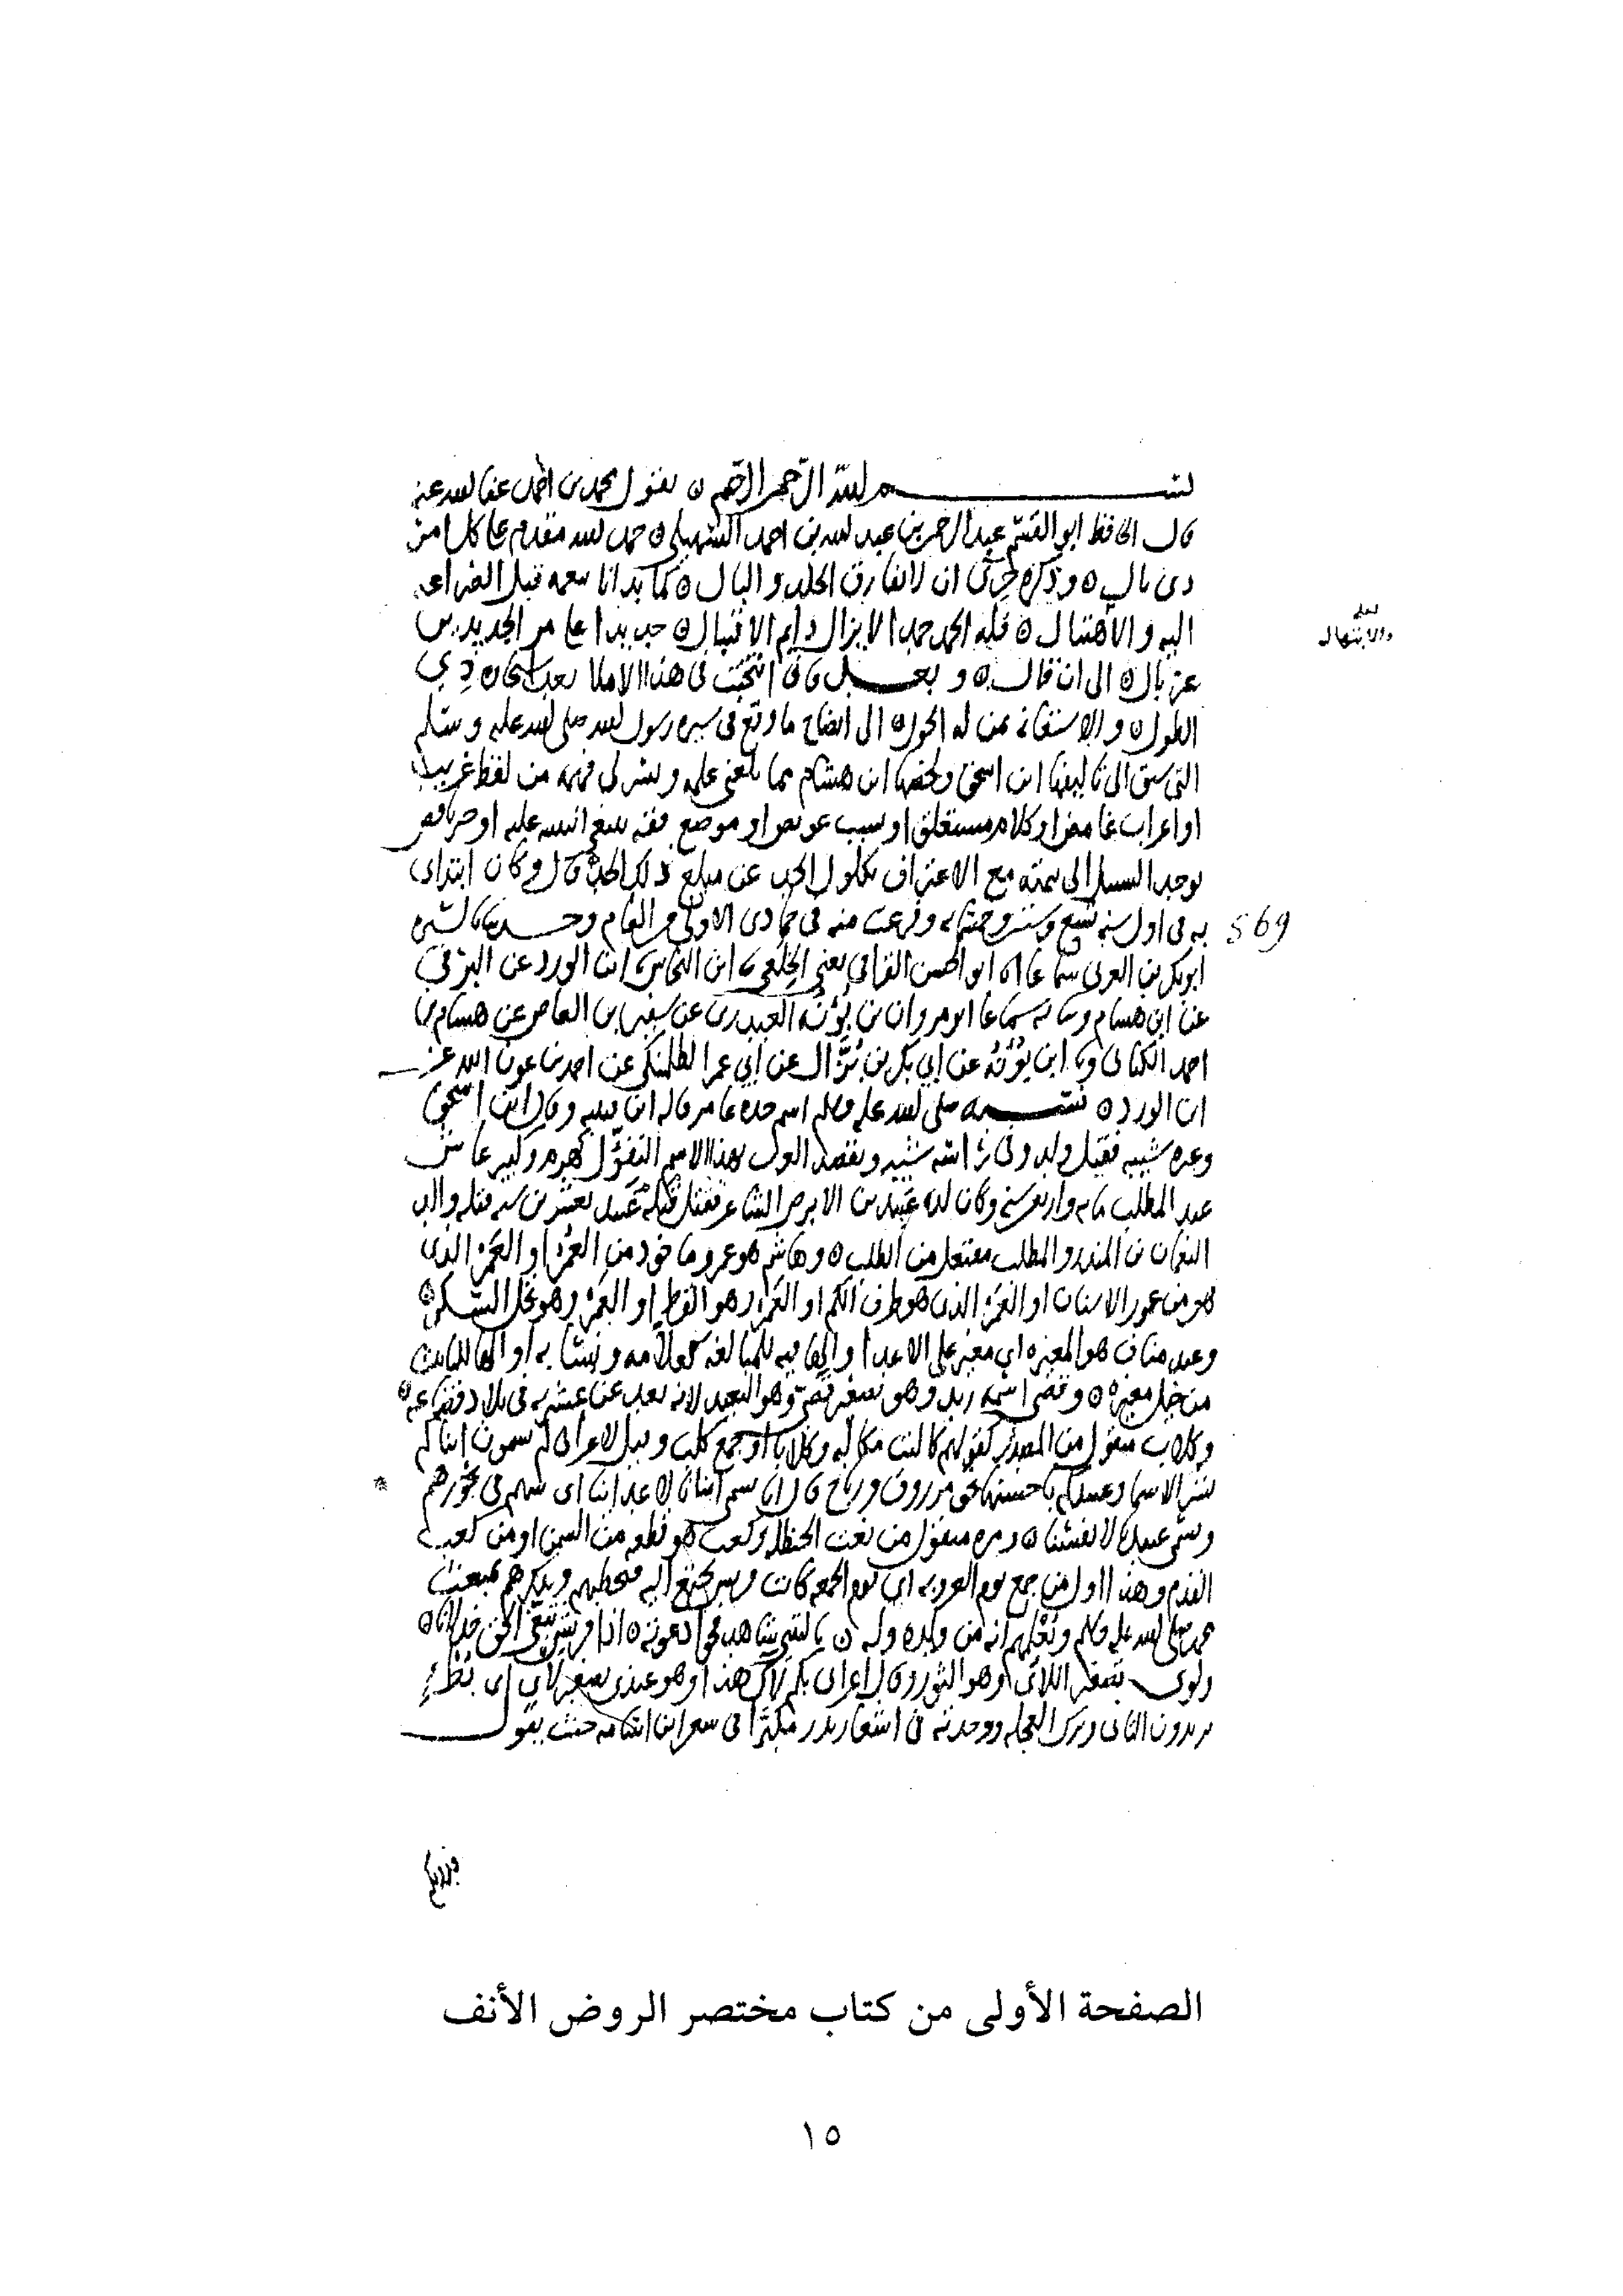 بسم الله الرحمن الرحيم ه يقول محمد بن احمد عفا الله عنه
قال الحافظ ابو القسم عبد الرحمن بن عبد الله بن احمد السهيلي ه حمد الله مقدم على كل امر
ذي بال ه وذكره حري ان لا يفارق الخلد والبال ه كما بدانا بنعمه قبل الضراعه
اليه والاهتبال ه فله الحمد حمدا لا يزال دايم الاقتبال ه جديدا على مر الجديدين
لعله
والابتهال
غير بال ه الى ان قال ه وبعد فاني انتحيت في هذا الاملا بعد استخاره ذي
الطول ه والاستعانه بمن له الحول ه الى ايضاح ما وقع في سيره رسول الله صلى الله عليه وسلم
التي سبق الى تاليفها ابن اسحق ولخصها ابن هشام مما بلغني علمه ويسر لي فهمه من لفظ غريب
او اعراب غامض او كلام مستغلق او نسب عويص او موضع فقه ينبغي التنبيه عليه او خبر ناقص
يوجد السبيل الى تتمته مع الاعتراف بكلول الحد عن مبلغ ذلك الحد قال وكان ابتداي
به في اول سنه تسع وستين وخمسمايه وفرغت منه في جمادى الاولى من العام
569
ابو بكر بن العربي سماعا ابو الحسن القرافي يعني الخلعي ابن النحاس ابن الورد عن البرقي
عن ابن هشام سماعا ابو مروان بن بونه العبدري عن سفين بن العاص عن هشام بن
احمد الكناني ابن بونه عن ابي بكر بن بزال عن ابي عمر الطلمنكي عن احمد بن عون الله عن
ابن الورد ه نسبه صلى الله عليه وسلم اسم جده عامر قاله ابن قتيبه وقال ابن اسحق
وغيره شيبه فقيل ولد وفي راسه شيبه ويقصد العرب بهذا الاسم التفؤل كهرم وكبير عاش
عبد المطلب مايه واربعين سنه وكان لده عبيد بن الابرص الشاعر فقتل قبله عبيد بعشرين سنه قتله والد
النعمان بن المنذر والمطلب مفتعل من الطلب ه وهاشم هو عمرو ماخوذ من العمر او العمر الذي
هو من عمور الاسنان او العمر الذي هو طرف الكم او العمر وهو القرط او العمر وهو نخل السكر ه
وعبد مناف هو المغيره اي مغير على الاعدا والها فيه للمبالغه كعلامه ونسابه او الها للتانيث
من خيل مغيره ه وقصي اسمه زيد وهو تصغير قصي وهو البعيد لانه بعد عن عشيرته في بلاد قضاعه ه
وكلاب منقول من المصدر كقولهم كالبت مكالبه وكلابا او جمع كلب وقيل لاعرابي لم تسمون ابناكم
بشر الاسما وعبيدكم باحسنها نحو مرزوق ورباح قال انا نسمي ابنانا لاعداينا اي سهم في نحورهم
ونسمي عبيدنا لانفسنا ه ومره منقول من نعت الحنظله وكعب هو قطعه من السمن او من كعب
القدم وهذا اول من جمع يوم العروبه اي يوم الجمعه كانت قريش تجتمع اليه فيخطبهم ويذكرهم بمبعث
محمد صلى الله عليه وسلم ويعلمهم انه من ولده وله يا ليتني شاهد فحوا دعوته ه اذا قريش تبغي الحق خذلانا ه
ولوي تصغير اللاى وهو الثور وهو عندي تصغير لاي اي بطء
في شعر ابي اسامه حيث يقول
فدونكم
الصفحة الأولى من كتاب مختصر الروض الأنف
١٥